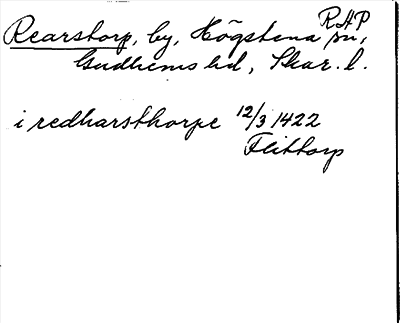 RAP
Rearstorp, by, Högstena sn,
Gudhems hd, Skar. l.
i redharsthorpe 12/3 1422
Flittorp